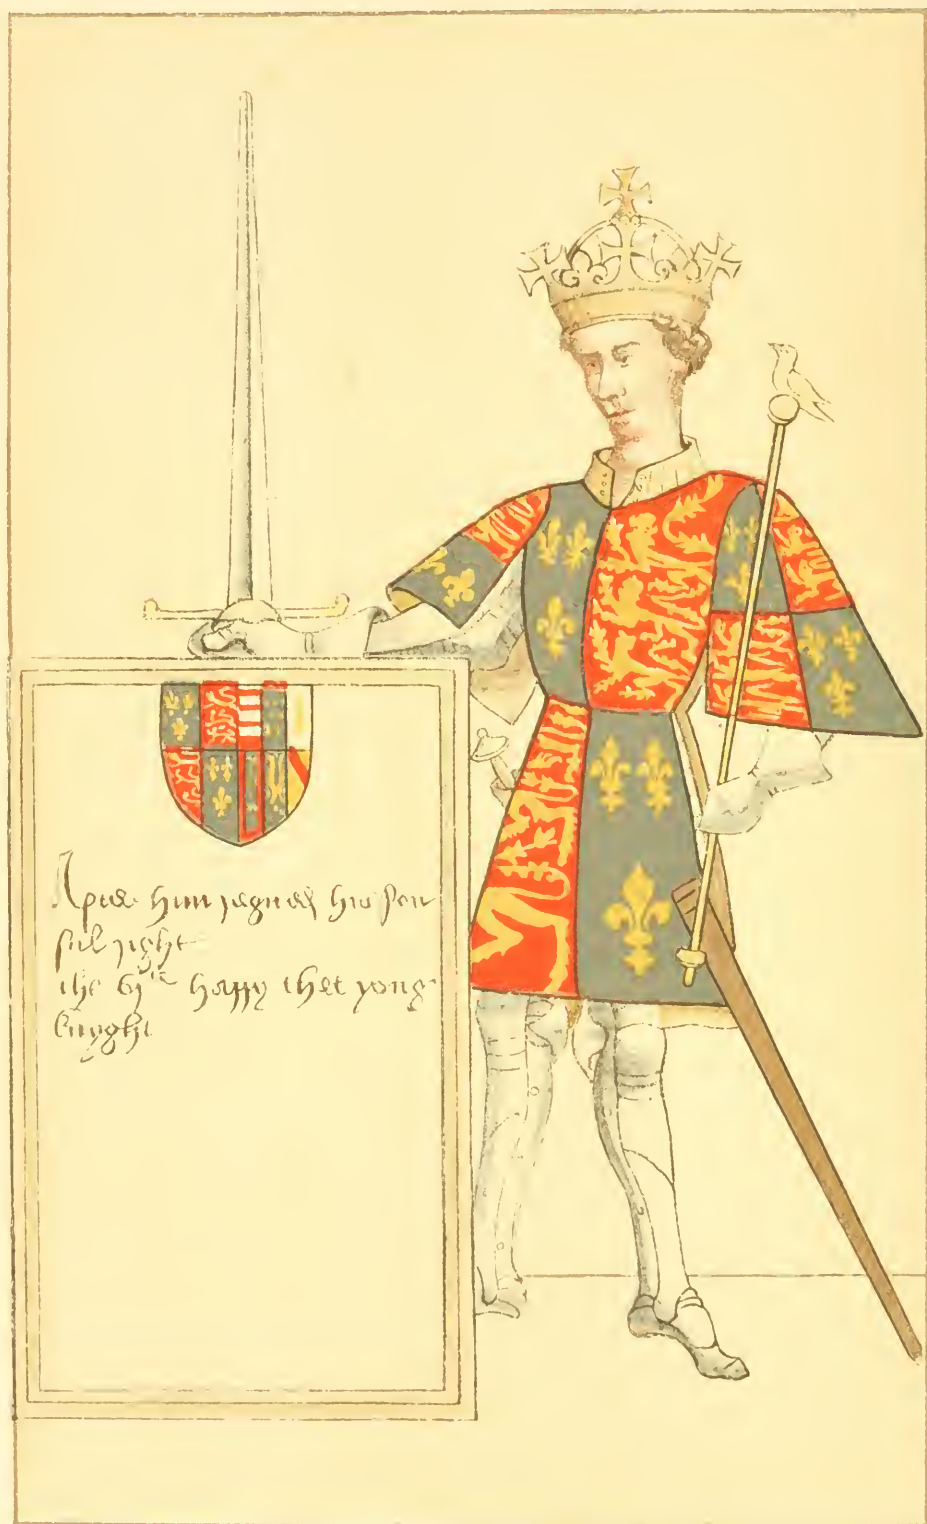 Aftre him regned his son
ful right
the vj te harry that yong
knyght